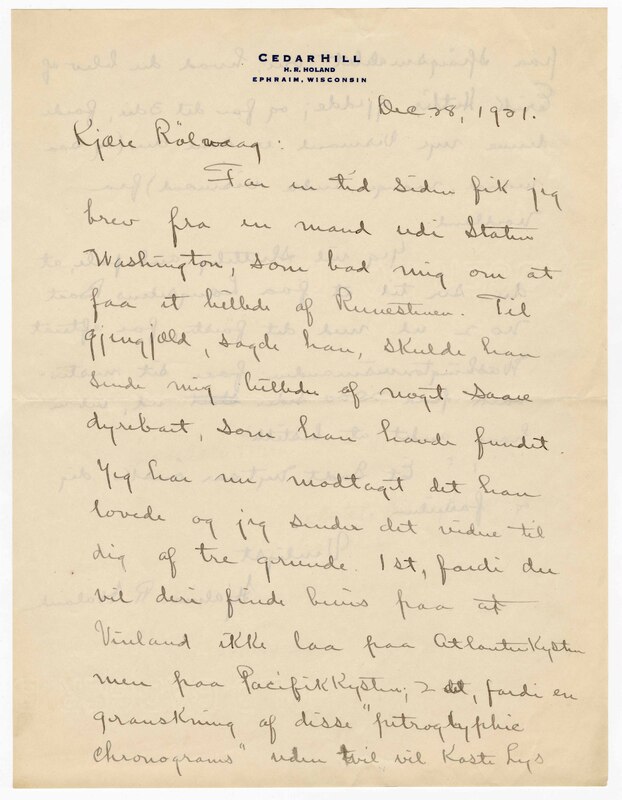 CEDAR HILL
H. R. HOLAND
EPHRAIM, WISCONSIN
Dec 28, 1931.
Kjære Rölvaag:
For en tid siden fik jeg
brev fra en mand udi Staten
Washington, som bad mig om at
faa et billede af Runestenen. Til
gjengjæld, sagde han, skulde han
sende mig billeder af noget saare
dyrebart, som han havde fundet.
Jeg har nu modtaget det han
lovede og jeg sender det videre til
dig af tre grunde. 1st, fordi du
vil deri finde bevis paa at
Vinland ikke laa paa Atlanterkysten
men paa Pacifikkysten; 2det, fordi en
granskning af disse "petroglyphic
chronograms" uden tvil vil kaste lys